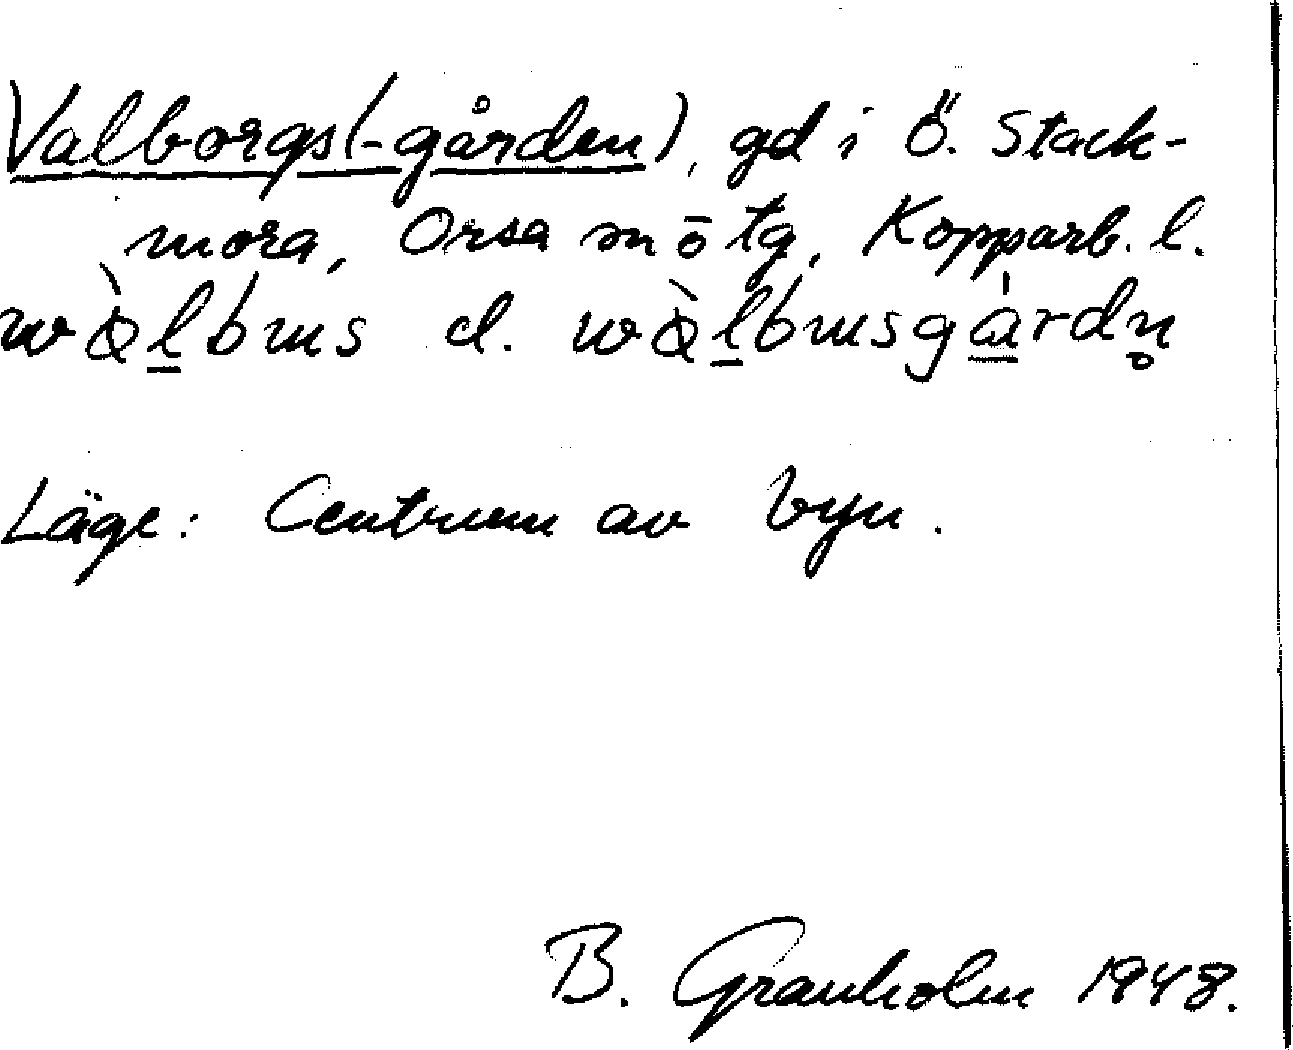 Valborgs(-gården), gd i Ö. Stack-
mora, Orsa sn ö tg, Kopparb. l.
el.
Läge: Centrum av byn.
B. Granholm 1948.